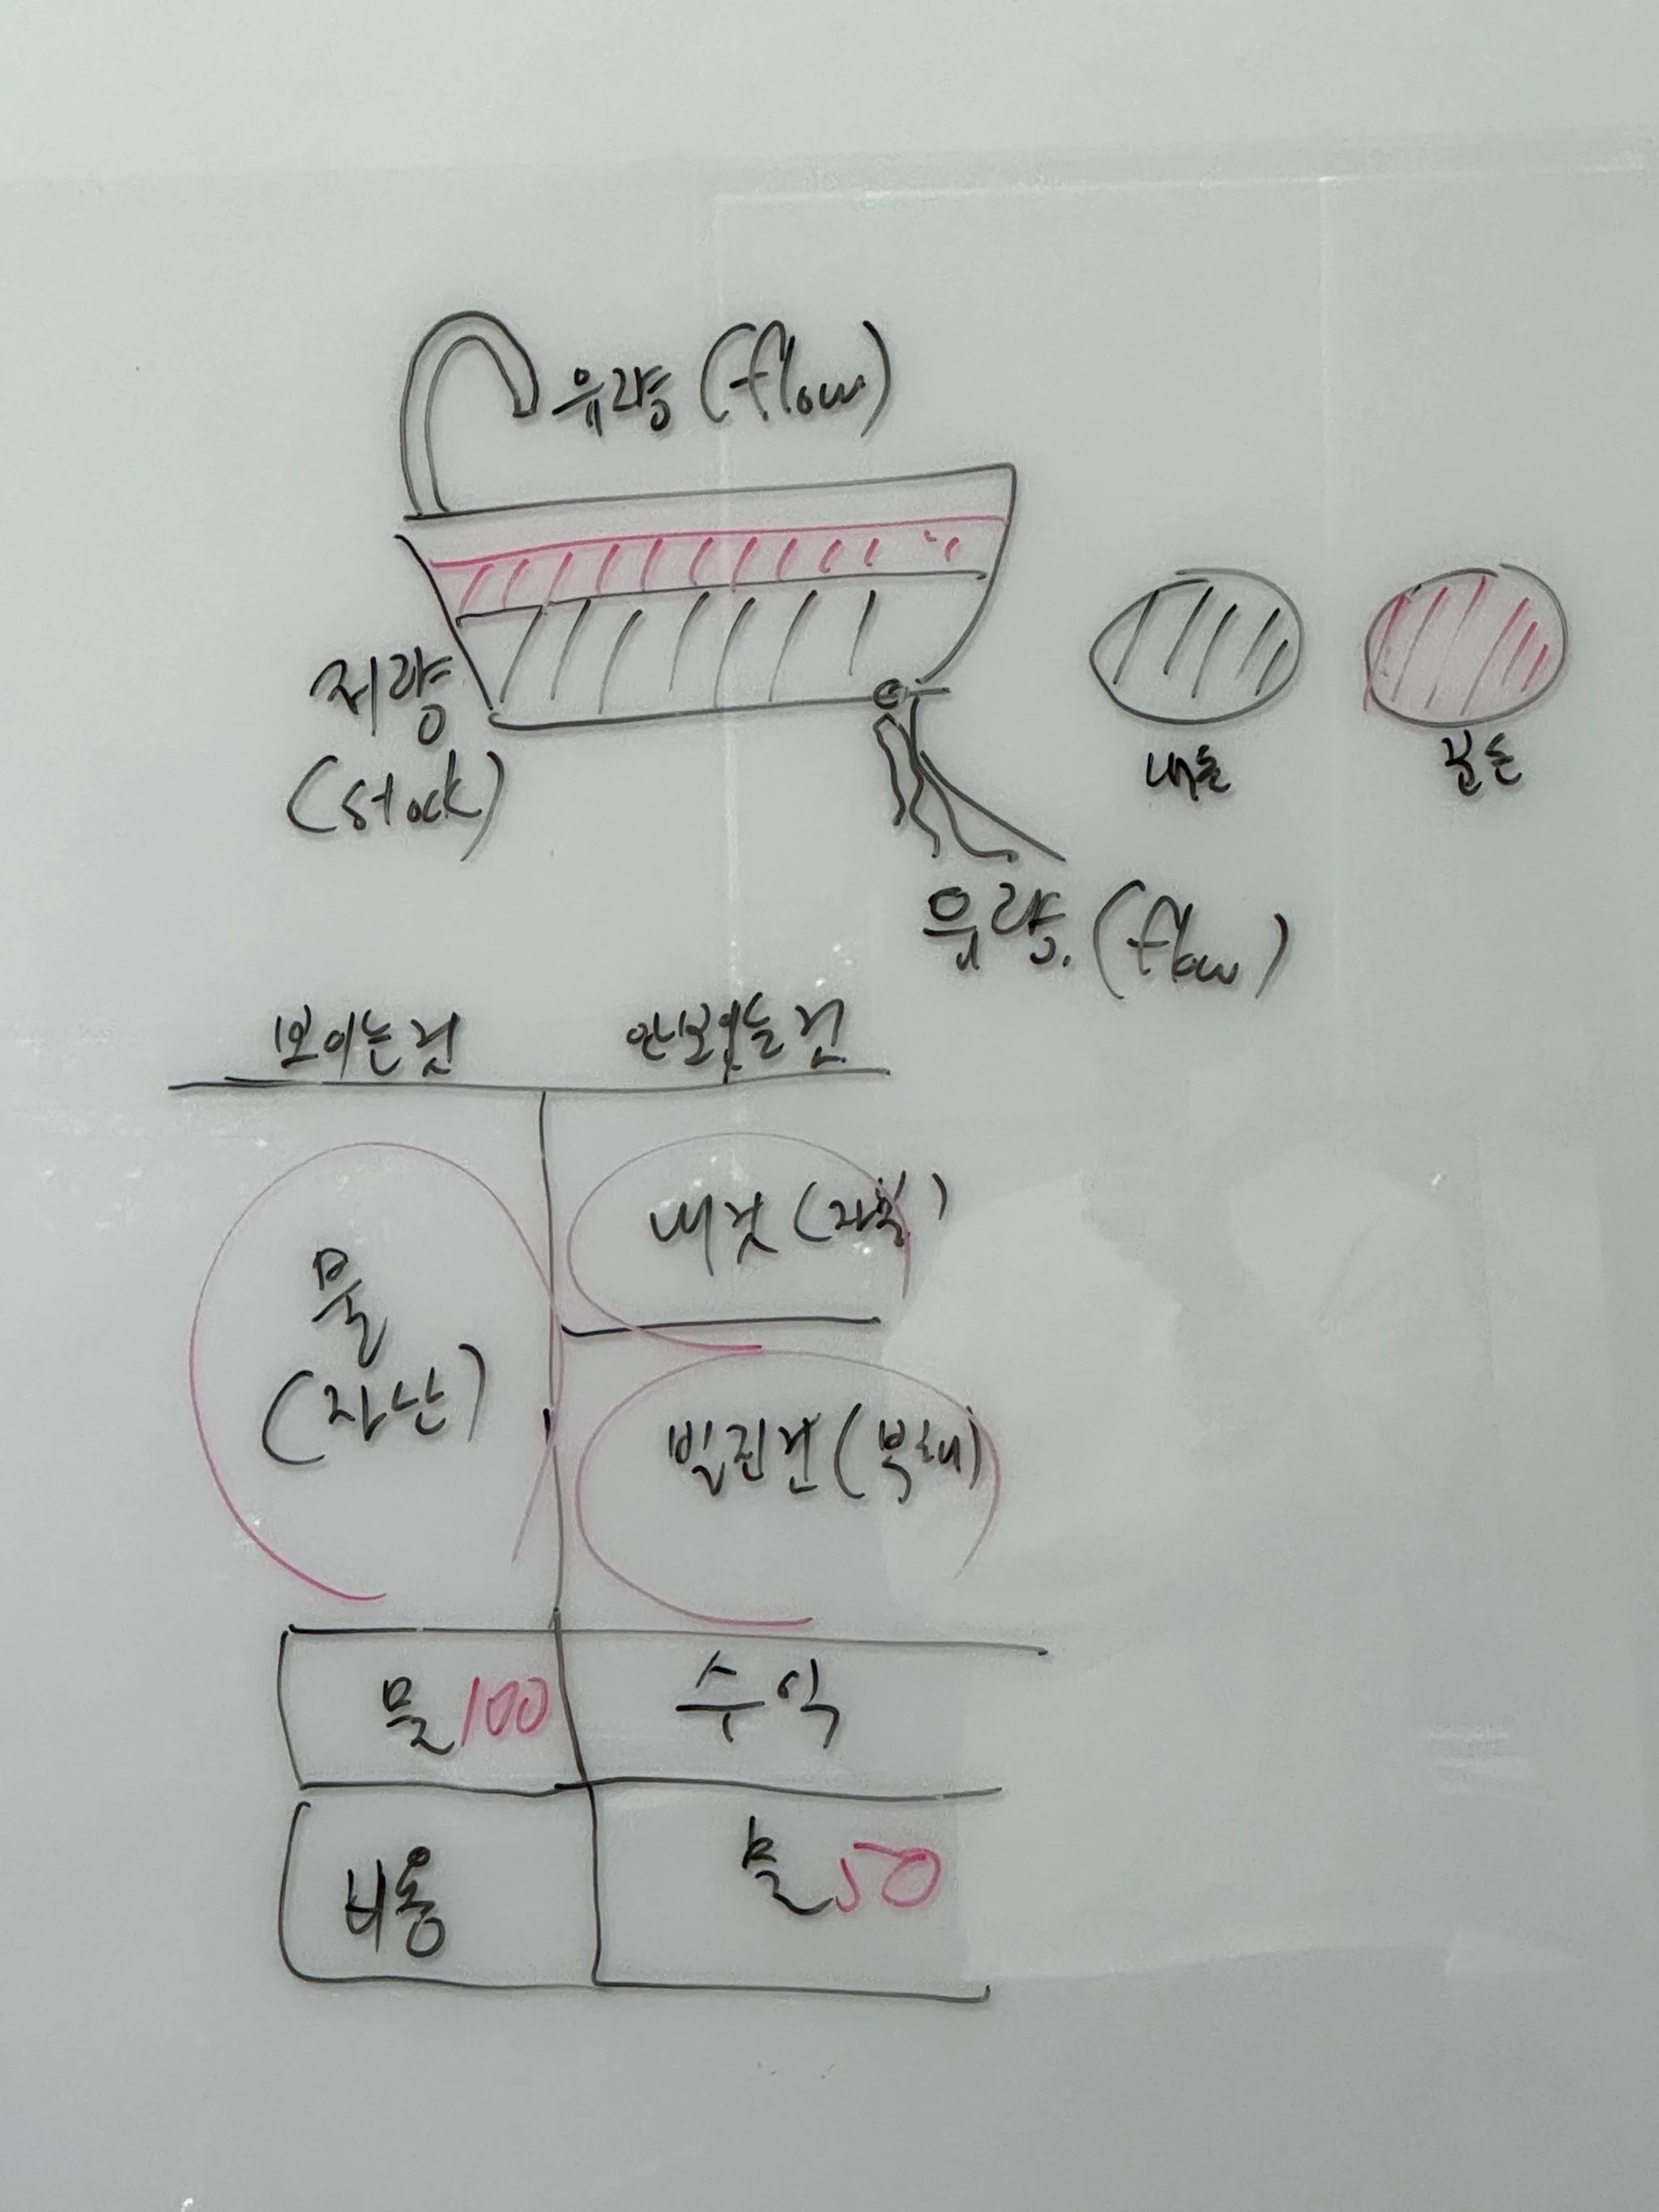 유량 (flow)
저량
(stock)
내돈
유량. (flow)
보이는것
안보이는것
물
(자산)
내것 (자본)
빌린것 (부채)
물 100
수익
비용
물 50